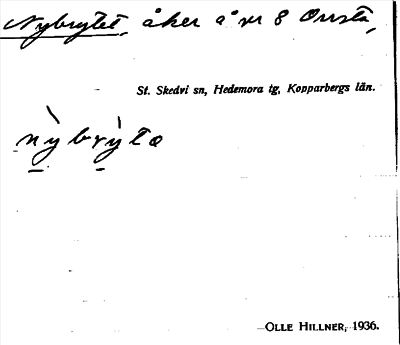 Nybrytet, åker å nr 8 Onsta,
St. Skedvi sn, Hedemora tg, Kopparbergs län.
nỳbrỳtə
OLLE HILLNER, 1936.